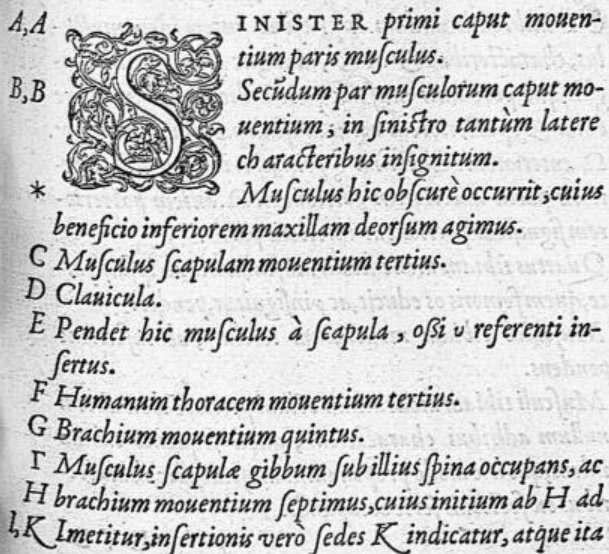 A,A SINISTER primi caput mouen-
tium paris muſculus.
B,B Secũdum par muſculorum caput mo-
uentium, in ſiniſtro tantùm latere
characteribus inſignitum.
* Muſculus hic obſcurè occurrit, cuius
beneficio inferiorem maxillam deorſum agimus.
C Muſculus ſcapulam mouentium tertius.
D Clauicula.
E Pendet hic muſculus à ſcapula, oſſi υ referenti in-
ſertus.
F Humanum thoracem mouentium tertius.
G Brachium mouentium quintus.
Γ Muſculus ſcapulæ gibbum ſub illius ſpina occupans, ac
H brachium mouentium ſeptimus, cuius initium ab H ad
I,K I metitur, inſertionis verò ſedes K indicatur, atque ita